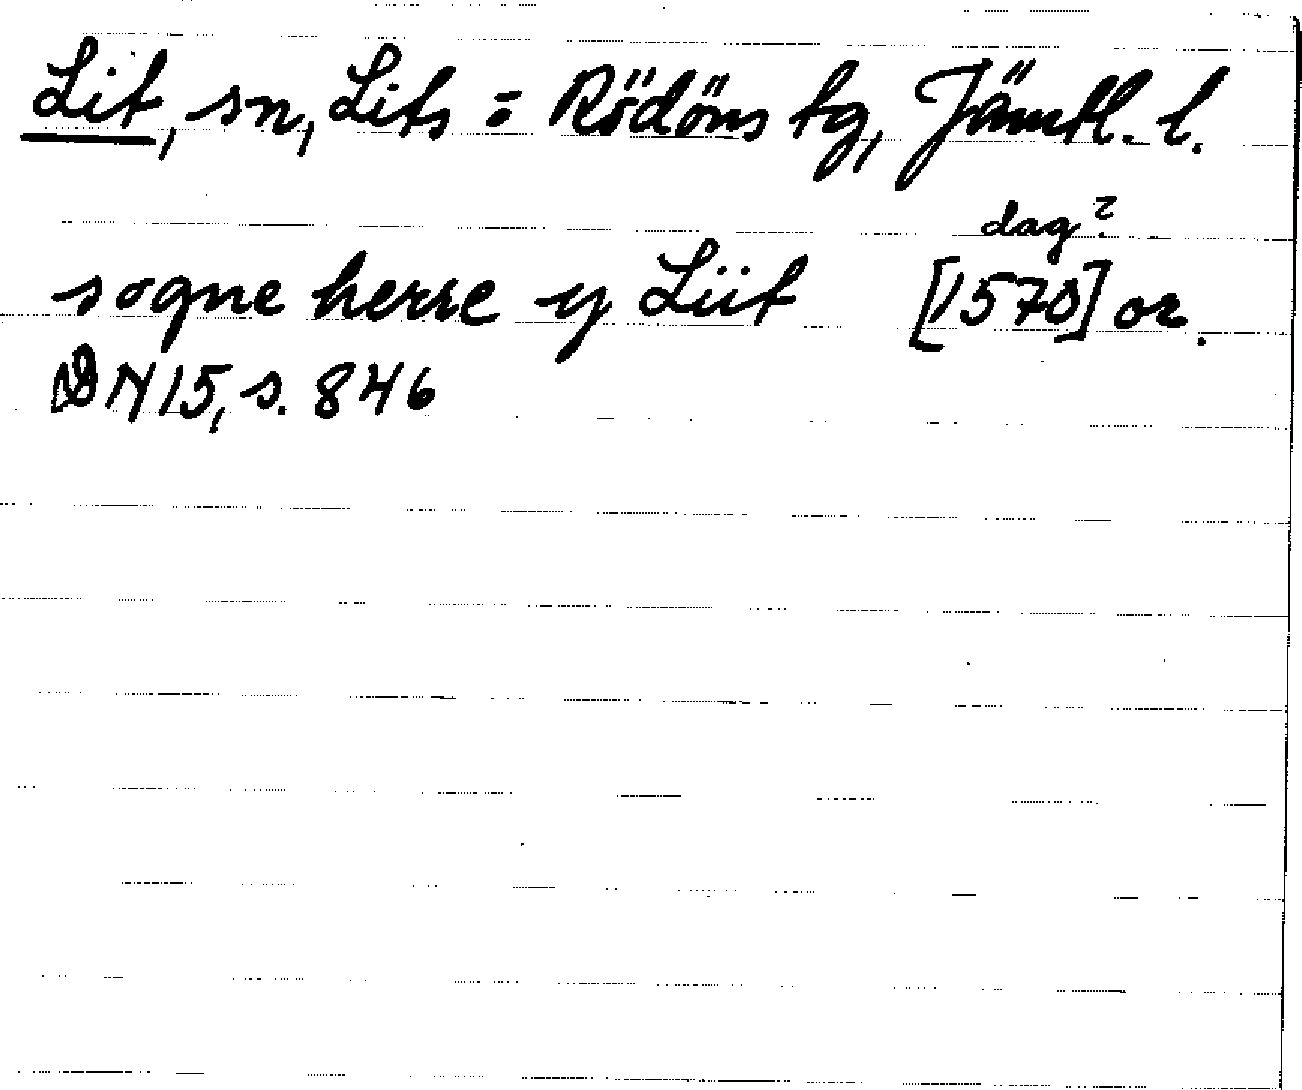 Lit, sn, Lits = Rödöns tg, Jämtl. l.
dag?
sogne herre y Liit [1570] or.
DN 15, s. 846